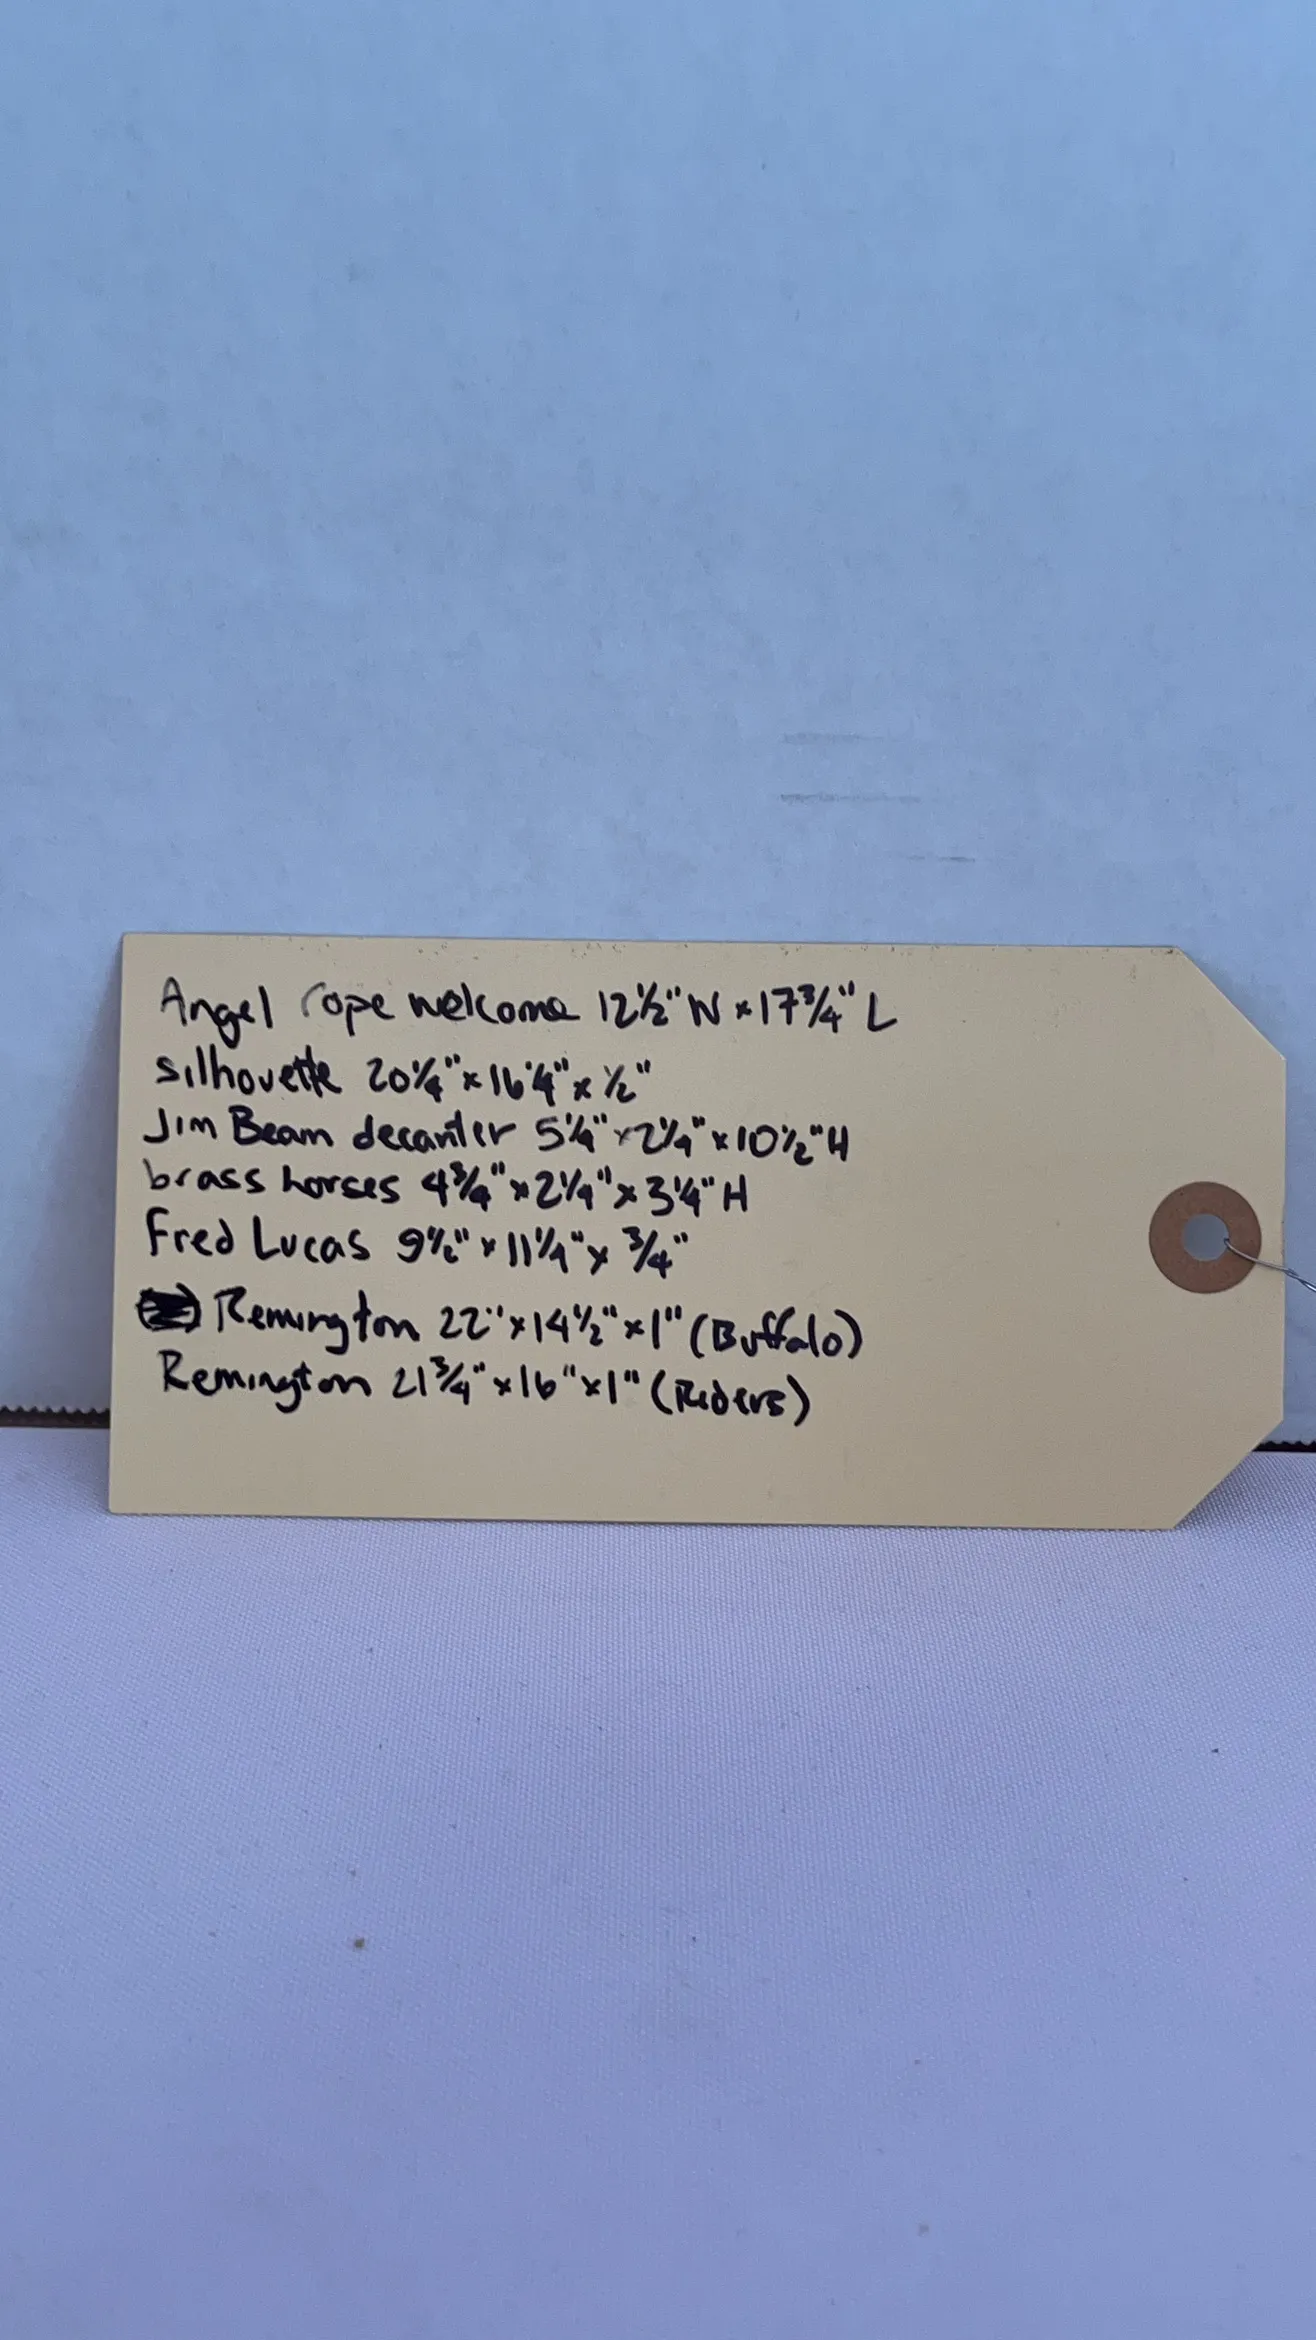 Angel rope welcome 12 1/2" W x 17 3/4" L
silhouette 20 1/4" x 16 1/4" x 1/2"
Jim Beam decanter 5 1/4" x 2 1/4" x 10 1/2" H
brass horses 4 3/4" x 2 1/4" x 3 1/4" H
Fred Lucas 9 1/2" x 11 1/4" x 3/4"
Remington 22" x 14 1/2" x 1" (Buffalo)
Remington 21 3/4" x 16" x 1" (Riders)